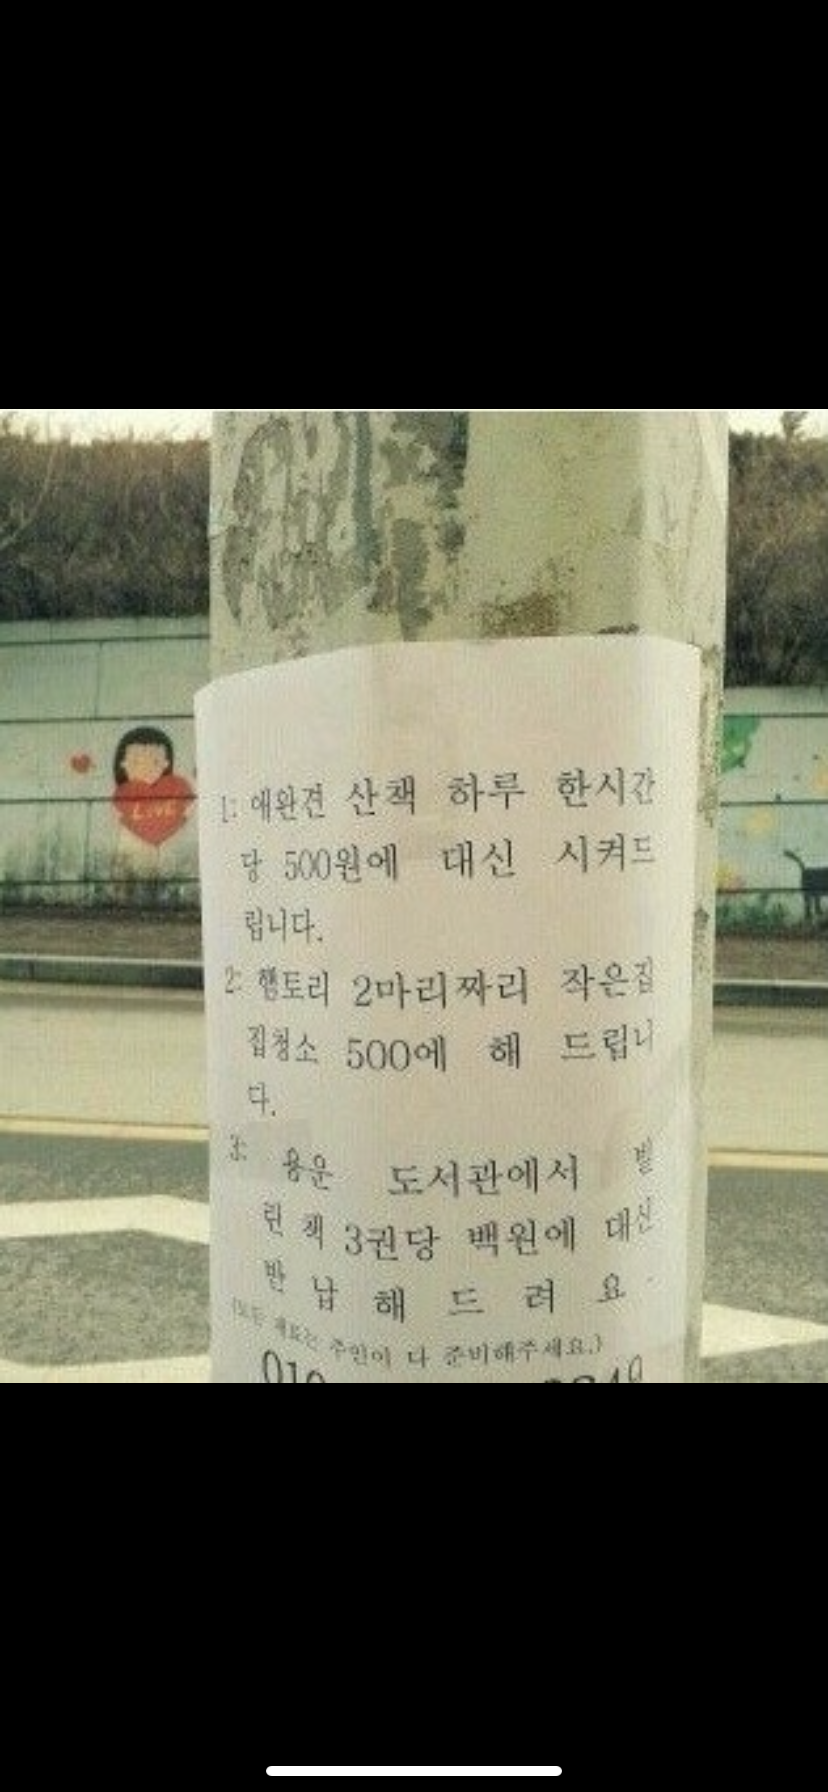 LOVE
1: 애완견 산책 하루 한시간
당 500원에 대신 시켜드
립니다.
2: 햄토리 2마리짜리 작은집
집청소 500에 해 드립니
다.
3: 용운 도서관에서 빌
린 책 3권당 백원에 대신
반 납 해 드 려 요.
(모든 재료는 주인이 다 준비해주세요.)
010